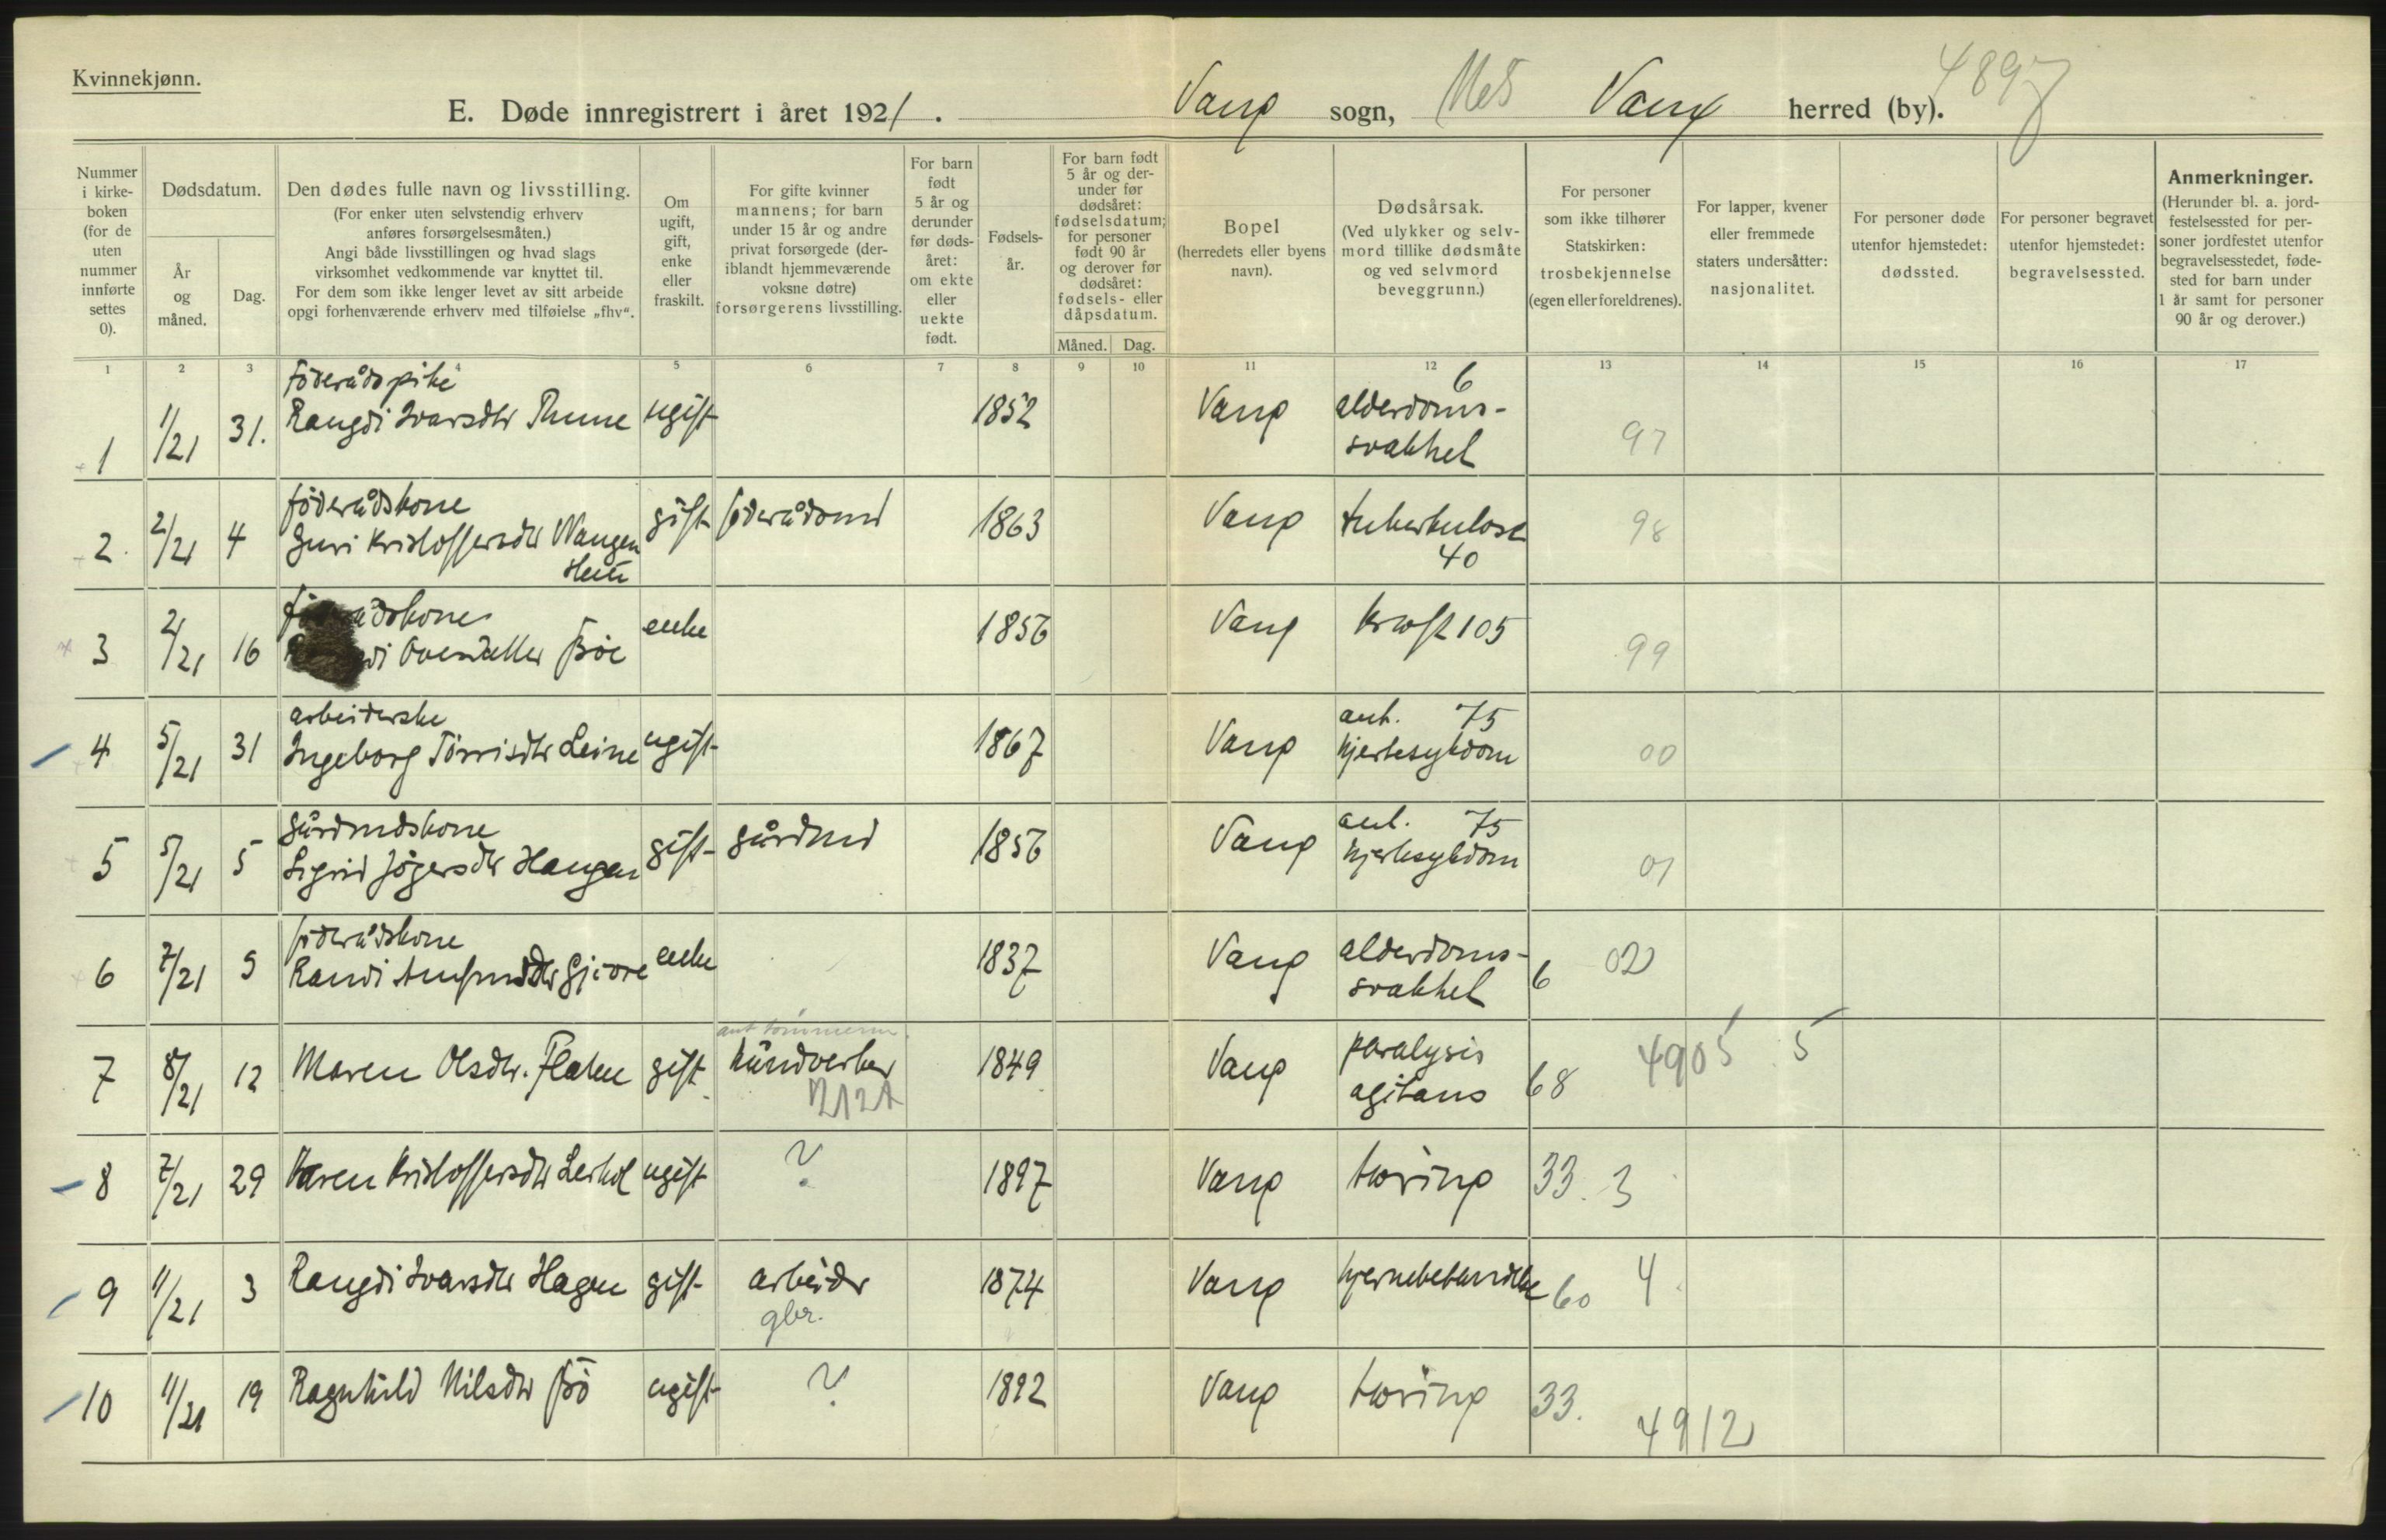 Kvinnekjønn.
E. Døde innregistrert i året 1921. Vang sogn, Vang herred (by). 4897
Nummer i kirke-boken (for de uten nummer innførte settes 0).
Dødsdatum.
År og måned.
Dag.
Den dødes fulle navn og livsstilling.
(For enker uten selvstendig erhverv anføres forsørgelsesmåten.)
Angi både livsstillingen og hvad slags virksomhet vedkommende var knyttet til.
For dem som ikke lenger levet av sitt arbeide opgi forhenværende erhverv med tilføielse „fhv“.
Om ugift, gift, enke eller fraskilt.
For gifte kvinner mannens; for barn under 15 år og andre privat forsørgede (der-iblandt hjemmeværende voksne døtre) forsørgerens livsstilling.
For barn født 5 år og derunder før døds-året: om ekte eller uekte født.
Fødsels-år.
For barn født 5 år og der-under før dødsåret: fødselsdatum; for personer født 90 år og derover før dødsåret: fødsels- eller dåpsdatum.
Måned. Dag.
Bopel (herredets eller byens navn).
Dødsårsak.
(Ved ulykker og selv-mord tillike dødsmåte og ved selvmord beveggrunn.)
For personer som ikke tilhører Statskirken: trosbekjennelse (egen eller foreldrenes).
For lapper, kvener eller fremmede staters undersåtter: nasjonalitet.
For personer døde utenfor hjemstedet: dødssted.
For personer begravet utenfor hjemstedet: begravelsessted.
Anmerkninger.
(Herunder bl. a. jord-festelsessted for per-soner jordfestet utenfor begravelsesstedet, føde-sted for barn under 1 år samt for personer 90 år og derover.)
1 2 3 4 5 6 7 8 9 10 11 12 13 14 15 16 17
føderådspike 6
1 1/21 31. Rangdi Ivarsdtr Thune ugift 1852 Vang alderdoms-
svakhet 97
føderådskone
2. 2/21 4 Guri Kristoffersdtr Wangen gift føderådsmd 1863 Vang tuberkulose 98
40
3 2/21 16 enke 1856 Vang kreft 105 99
arbeiderske ant. 75
4 5/21 31 Ingeborg Tørrisdtr Leine ugift 1867 Vang hjertesykdom 00
gårdmdskone ant. 75
5 5/21 5 Sigrid Jøgersdtr Haugen gift gårdmd 1856 Vang hjertesykdom 01
føderådskone
6 7/21 9 Randi enke 1837 Vang alderdoms-
svakhet 6 02
7 8/21 12 Maren Olsdtr. Flaten gift håndverker 1849 Vang paralysis
agitans 68 4905 5
8 7/21 29 Karen Kristoffersdtr Leirhol ugift ? 1897 Vang tæring 33. 3
9 11/21 3 Rangdi Ivarsdtr Hagen gift arbeider 1874 Vang hjernebetendelse 60 4
gbr.
10 11/21 19 Ragnhild Nilsdtr Bø ugift ? 1892 Vang tæring 33.
4912